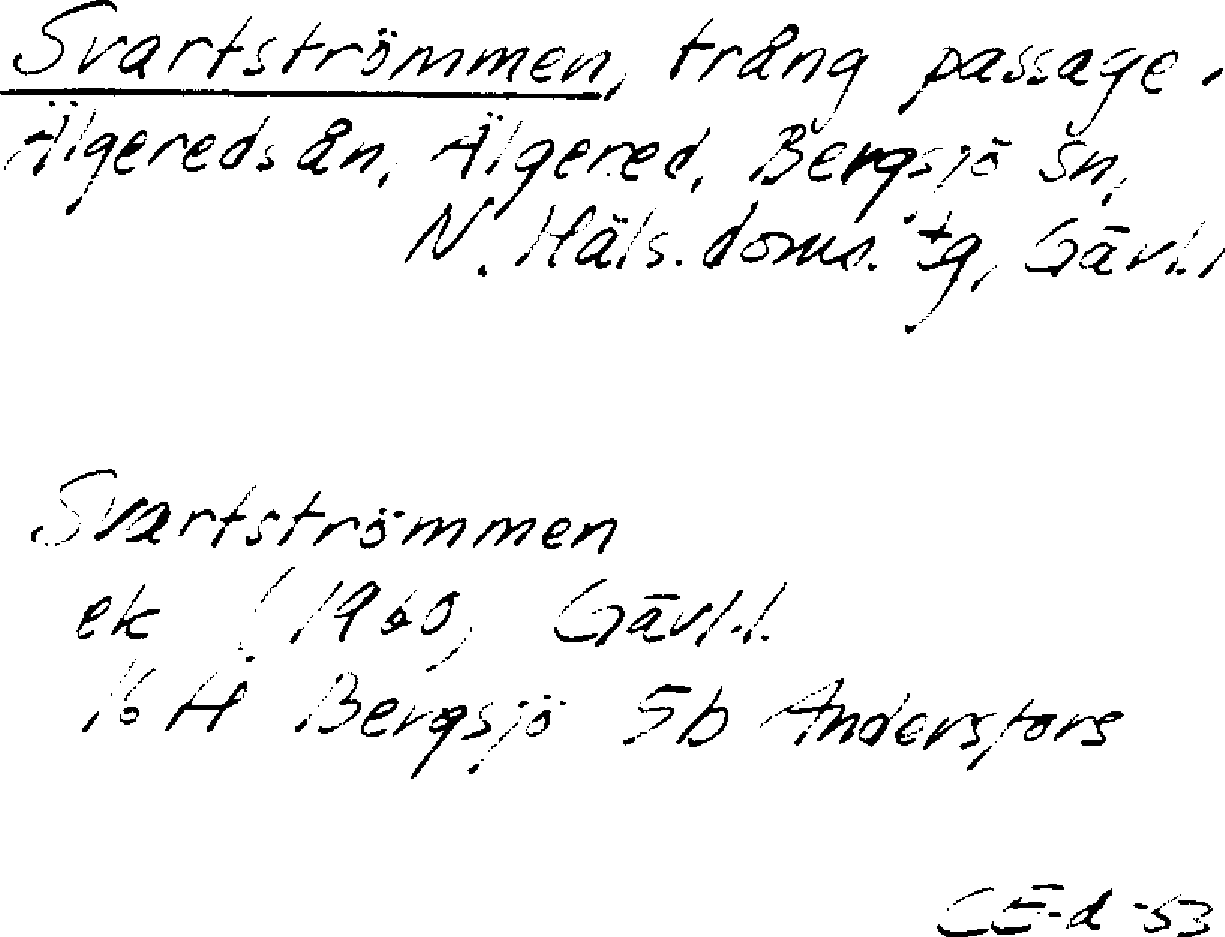 Svartströmmen, trång passage i
Älgeredsån, Älgered, Bergsjö sn,
N. Häls. doms. tg, Gävl.l
Svartströmmen
ek (1960) Gävl.l.
16 H Bergsjö 5b Andersfors
CE-d-53